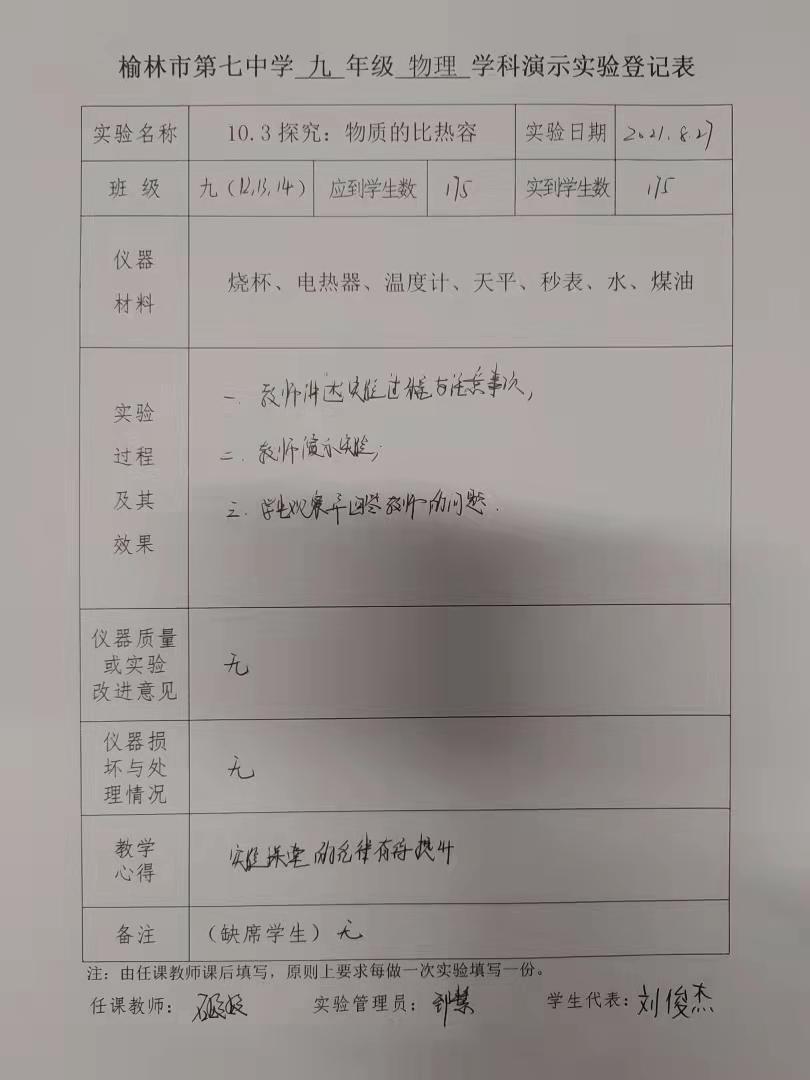 榆林市第七中学 九 年级 物理 学科演示实验登记表
实验名称 10.3 探究：物质的比热容 实验日期 2021.8.27
班 级 九（12,13,14） 应到学生数 175 实到学生数 175
仪器
材料
烧杯、电热器、温度计、天平、秒表、水、煤油
实验
过程
及其
效果
一. 教师讲述实验过程与注意事项,
二. 教师演示实验;
三. 学生观察并回答教师的问题.
仪器质量
或实验
改进意见
无
仪器损
坏与处
理情况
无
教学
心得
实验课堂的纪律有待提升
备注 （缺席学生）无
注：由任课教师课后填写，原则上要求每做一次实验填写一份。
任课教师： 实验管理员： 学生代表：刘俊杰